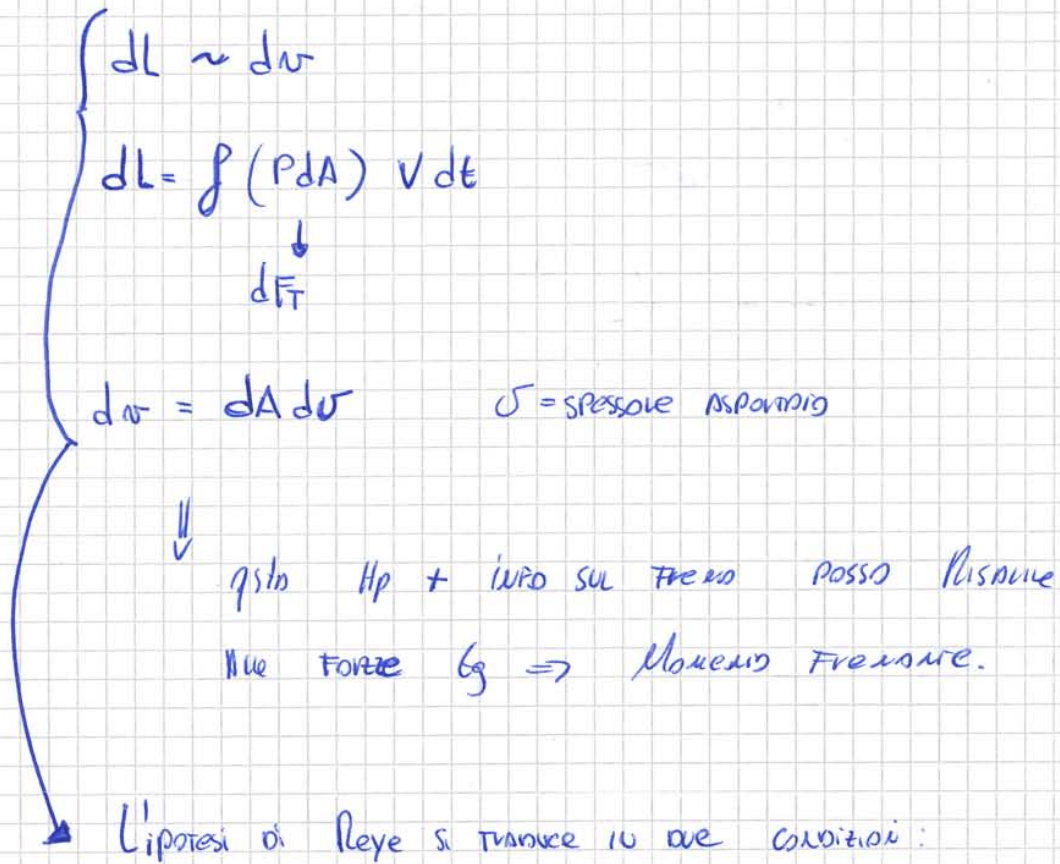 dL ~ dv
dL = f (PdA) V dt
↓
dF_T
dv = dA dδ δ = spessore asportato
⇓
qsta Hp + info sul freno posso risalire
alle forze tg => Momento frenante.
L'ipotesi di Reye si traduce in due condizioni: